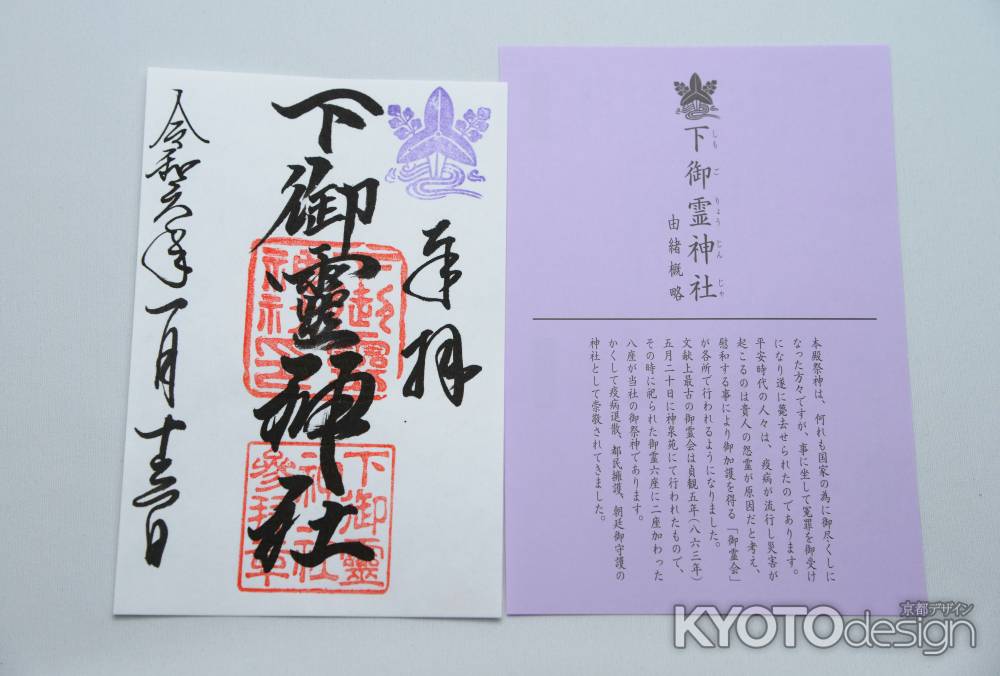 奉拝
下御靈神社
令和六年一月十三日
下御靈神社参拝章
下御霊神社
しもごりょうじんじゃ
由緒概略
本殿祭神は、何れも国家の為に御尽くしに
なった方々ですが、事に坐して冤罪を御受け
になり遂に薨去せられたのであります。
平安時代の人々は、疫病が流行し災害が
起こるのは貴人の怨霊が原因だと考え、
慰和する事により御加護を得る「御霊会」
が各所で行われるようになりました。
文献上最古の御霊会は貞観五年(八六三年)
五月二十日に神泉苑にて行われたもので、
その時に祀られた御霊六座に二座加わった
八座が当社の御祭神であります。
かくして疫病退散、都民擁護、朝廷御守護の
神社として崇敬されてきました。
京都デザイン
KYOTOdesign